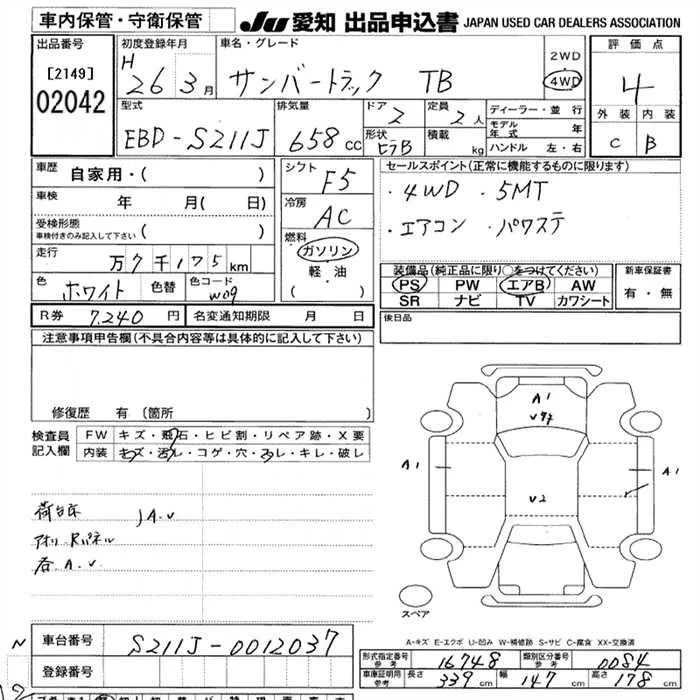 車内保管・守衛保管
JU 愛知 出品申込書 JAPAN USED CAR DEALERS ASSOCIATION
出品番号
[2149]
02042
初度登録年月
H 26 3月
車名・グレード
サンバートラック TB
2WD
4WD
評価点
4
外装 内装
C B
型式
EBD-S211J
排気量
658 CC
ドア 2
形状
定員 2人
積載 kg
ディーラー・並行
モデル年式 年
ハンドル 左・右
車歴
自家用・( )
車検
年 月( 日)
受検形態
車検付きのみ記入して下さい ( )
走行
万7千175km
色
ホワイト
色替
色コード
W09
シフト
F5
冷房
AC
燃料
ガソリン
軽・油
( )
セールスポイント(正常に機能するものに限ります)
・4WD ・5MT
・エアコン ・パワステ
装備品(純正品に限り○をつけてください)
PS PW エアB AW
SR ナビ TV カワシート
新車保証書
有・無
R券 7,240円
名変通知期限 月 日
後日品
注意事項申告欄(不具合内容等は具体的に記入して下さい)
修復歴 有(箇所 )
検査員記入欄
FW キズ・飛石・ヒビ割・リペア跡・X要
内装 キズ・汚レ・コゲ・穴・スレ・キレ・破レ
荷台床 A.U
アオリ Rパネル
A.U
A1
A1
U2
A1
スペア
A-キズ E-エクボ U-凹み W-補修跡 S-サビ C-腐食 XX-交換済
N
車台番号 S211J-0012037
登録番号
形式指定番号 参考 16748
類別区分番号 参考 0084
車庫証明用 参考 長さ 339cm 幅 147cm 高さ 178cm